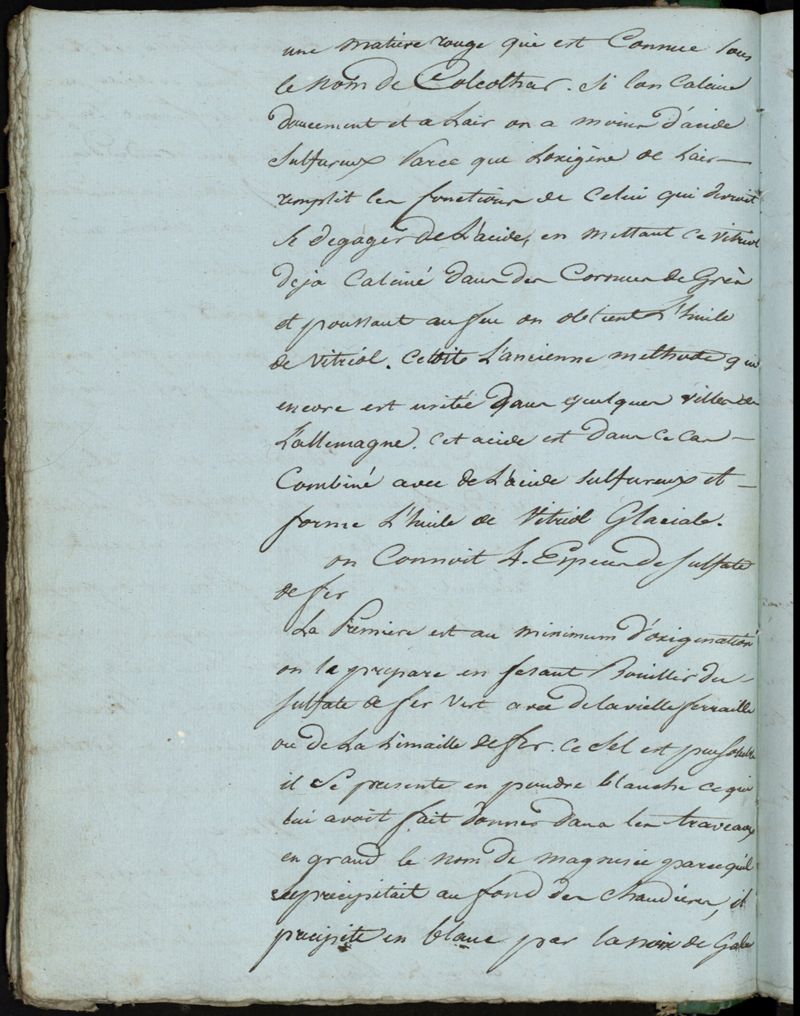 une matiere rouge qui est Connue sous
le nom de Colcothar. Si l'on Calcine
doucement et a L'air on a moins d'acide
Sulfureux Parce que L'oxigène de L'air
remplit les fonctions de Celui qui devroit
se degager de L'acide, en mettant ce vitriol
deja Calciné dans des Cornues de Grès
et poussant au feu on obtient L'huile
de Vitriol. Cette L'ancienne methode qui
encore est usitée dans quelques villes de
L'allemagne. Cet acide est dans ce cas
Combiné avec de L'acide Sulfureux et
forme L'huile de Vitriol Glaciale.
on Connoit 4. Especes de Sulfate
de fer
La Premiere est au minimum d'oxigenation
on la prepare en fesant Bouillir du
Sulfate de fer Vert avec de la vielle ferraille
ou de La Limaille de fer. Ce Sel est peu soluble
il Se presente en poudre blanche ce qui
lui avoit fait donner dans les traveaux
en grand le nom de magnesie parcequ'il
se precipitait au fond des Chaudieres, il
precipite en blanc par la noix de Galle